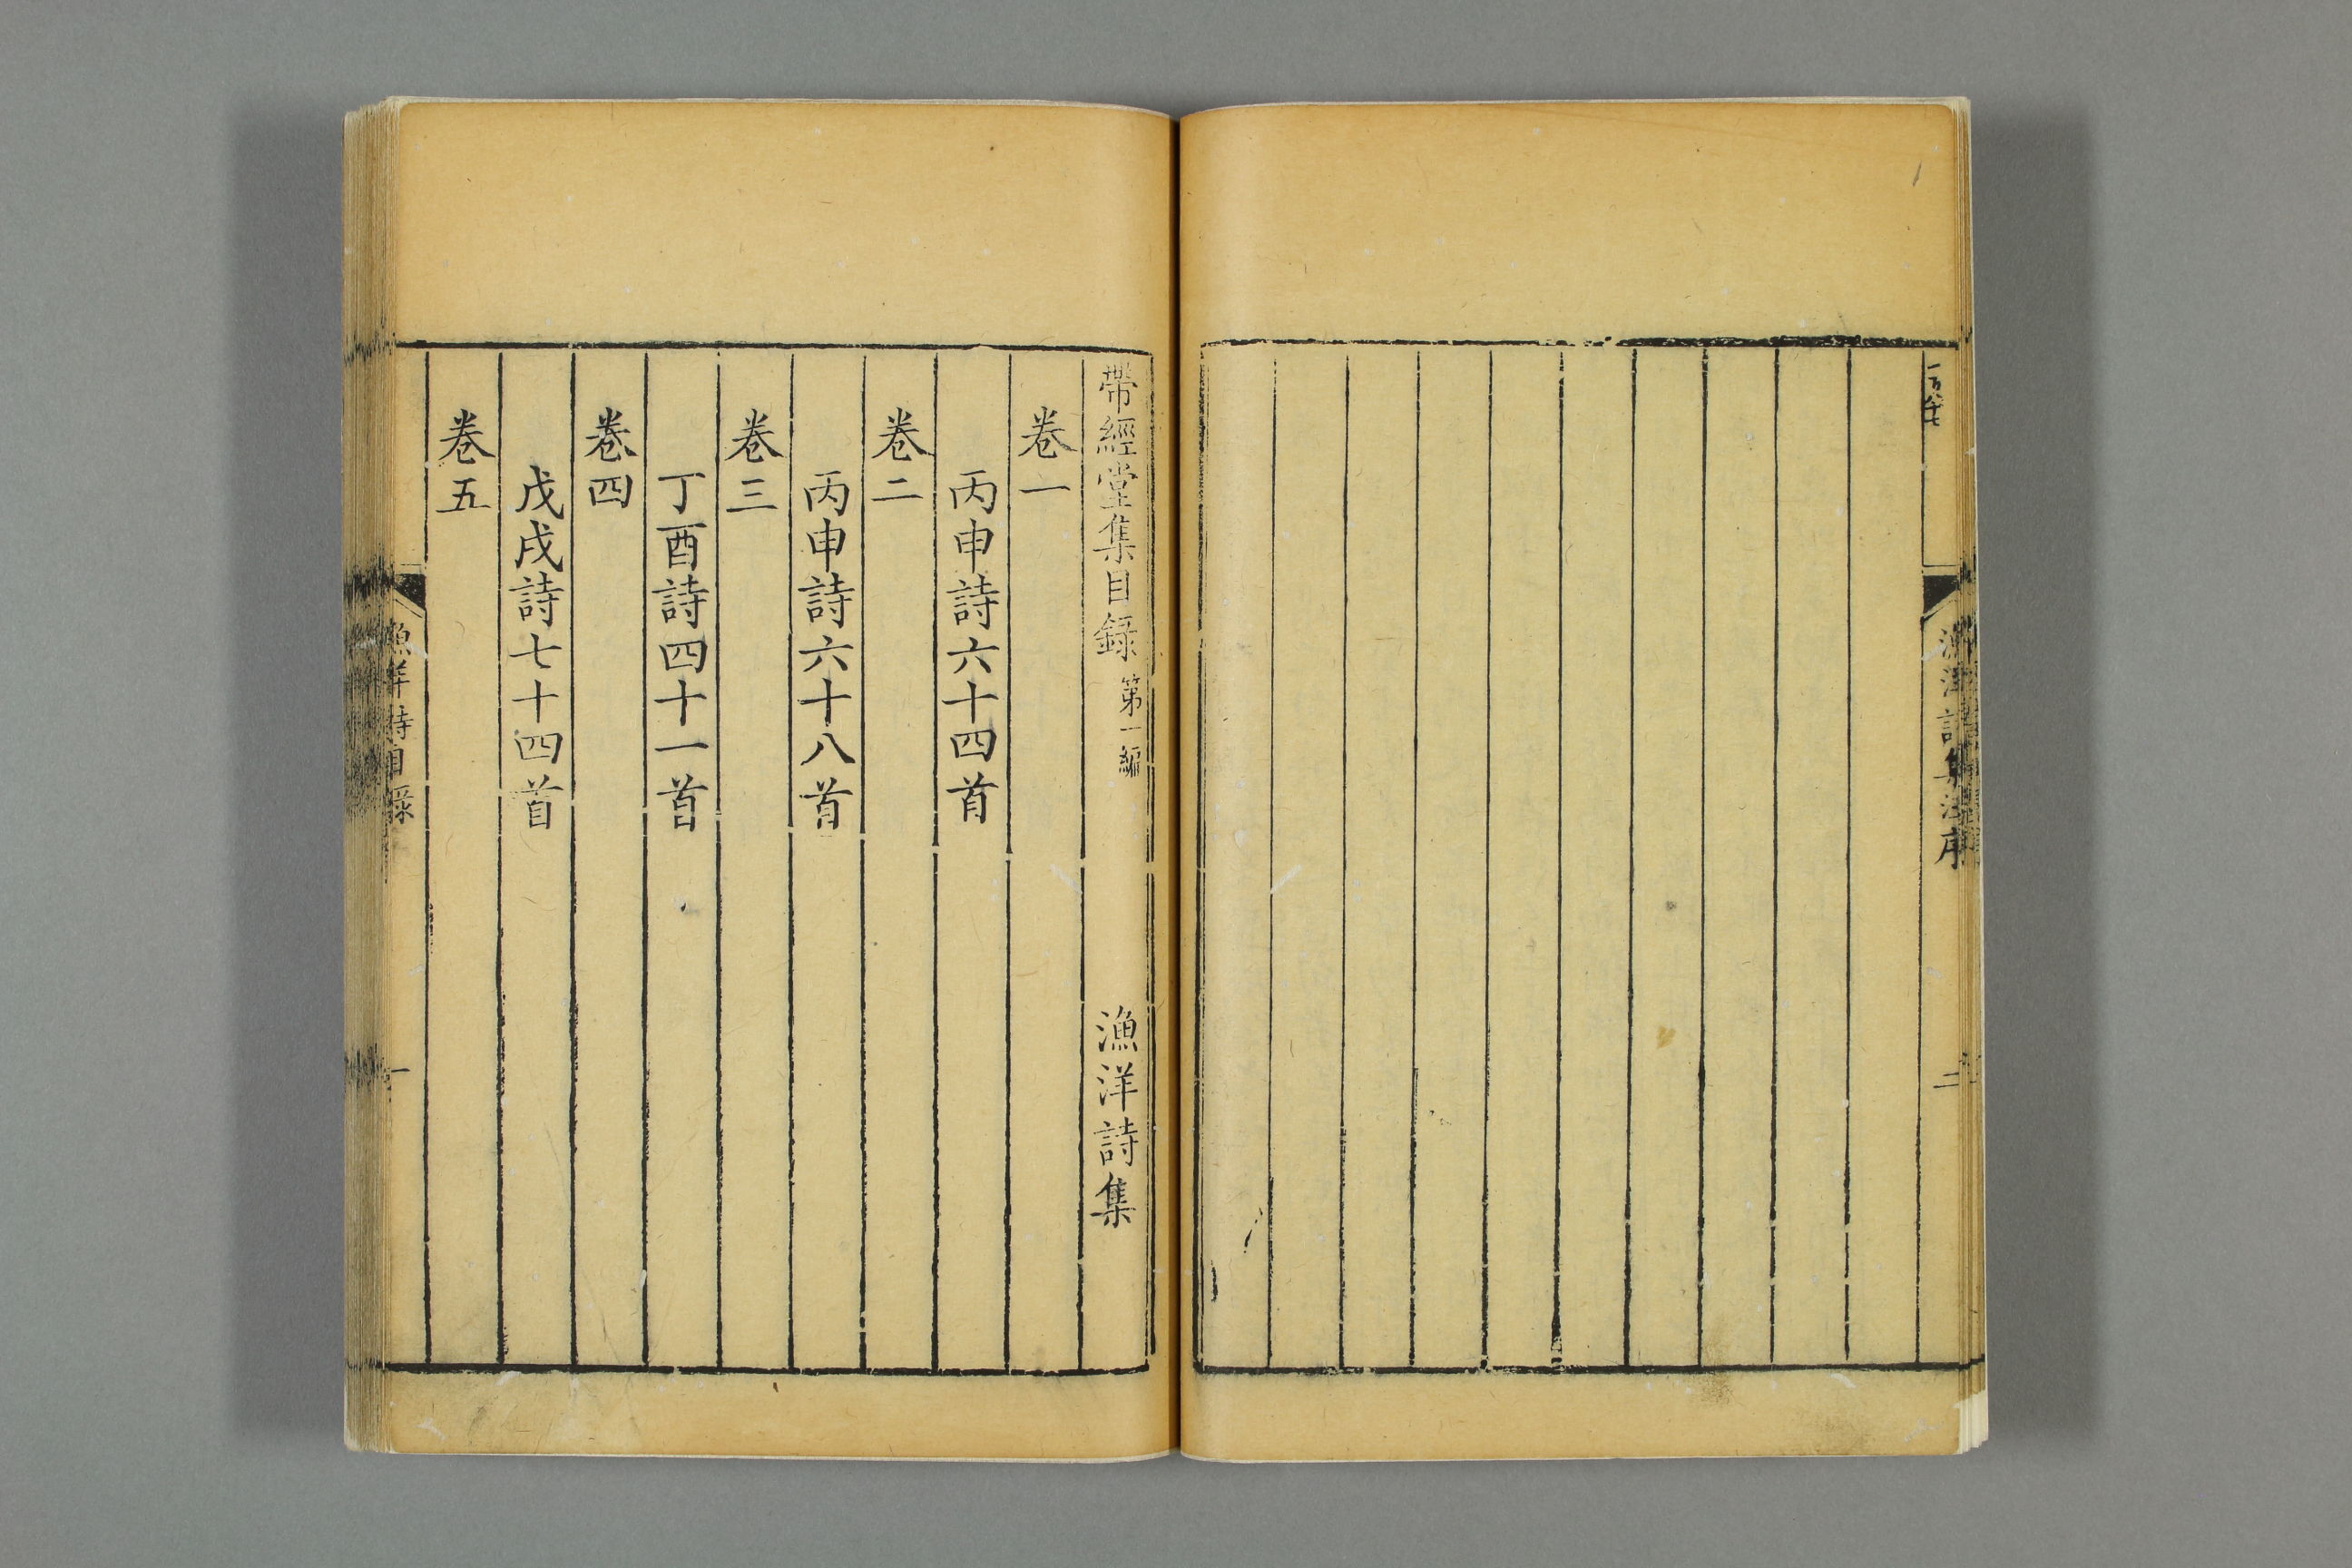 二
帶經堂集目録 第一編 漁洋詩集
卷一
丙申詩六十四首
卷二
丙申詩六十八首
卷三
丁酉詩四十一首
卷四
戊戌詩七十四首
卷五
漁洋詩目録
一